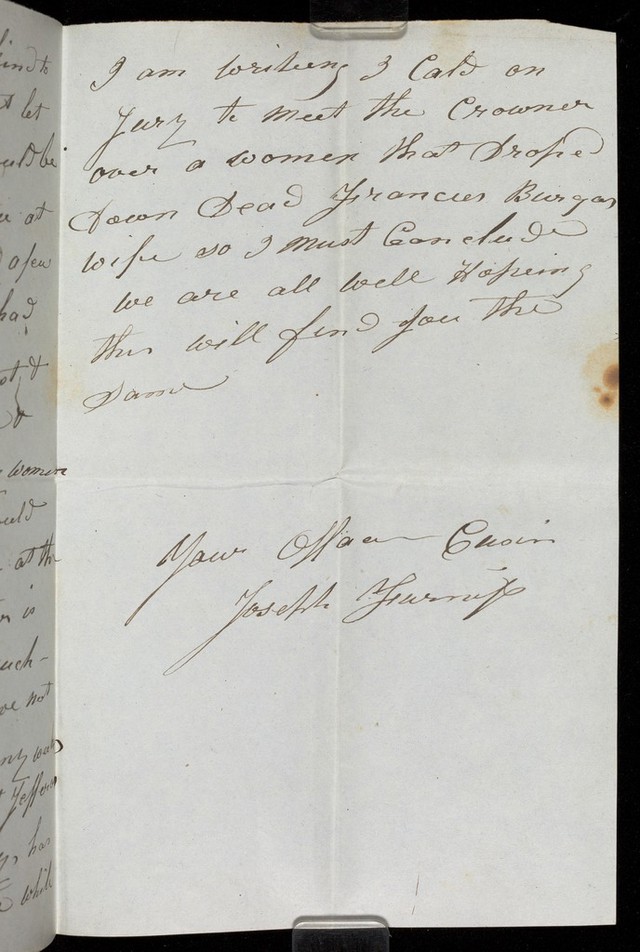 I am writeing I Cald on
Jury to Meet the Crowner
over a women that Droped
Down Dead Francies Burgas
wife so I Must Conclude
we are all well Hopeing
this will find you the
Same
Your Cusin
Joseph
find to
let
at
a few
had
women
at the
is
not
while